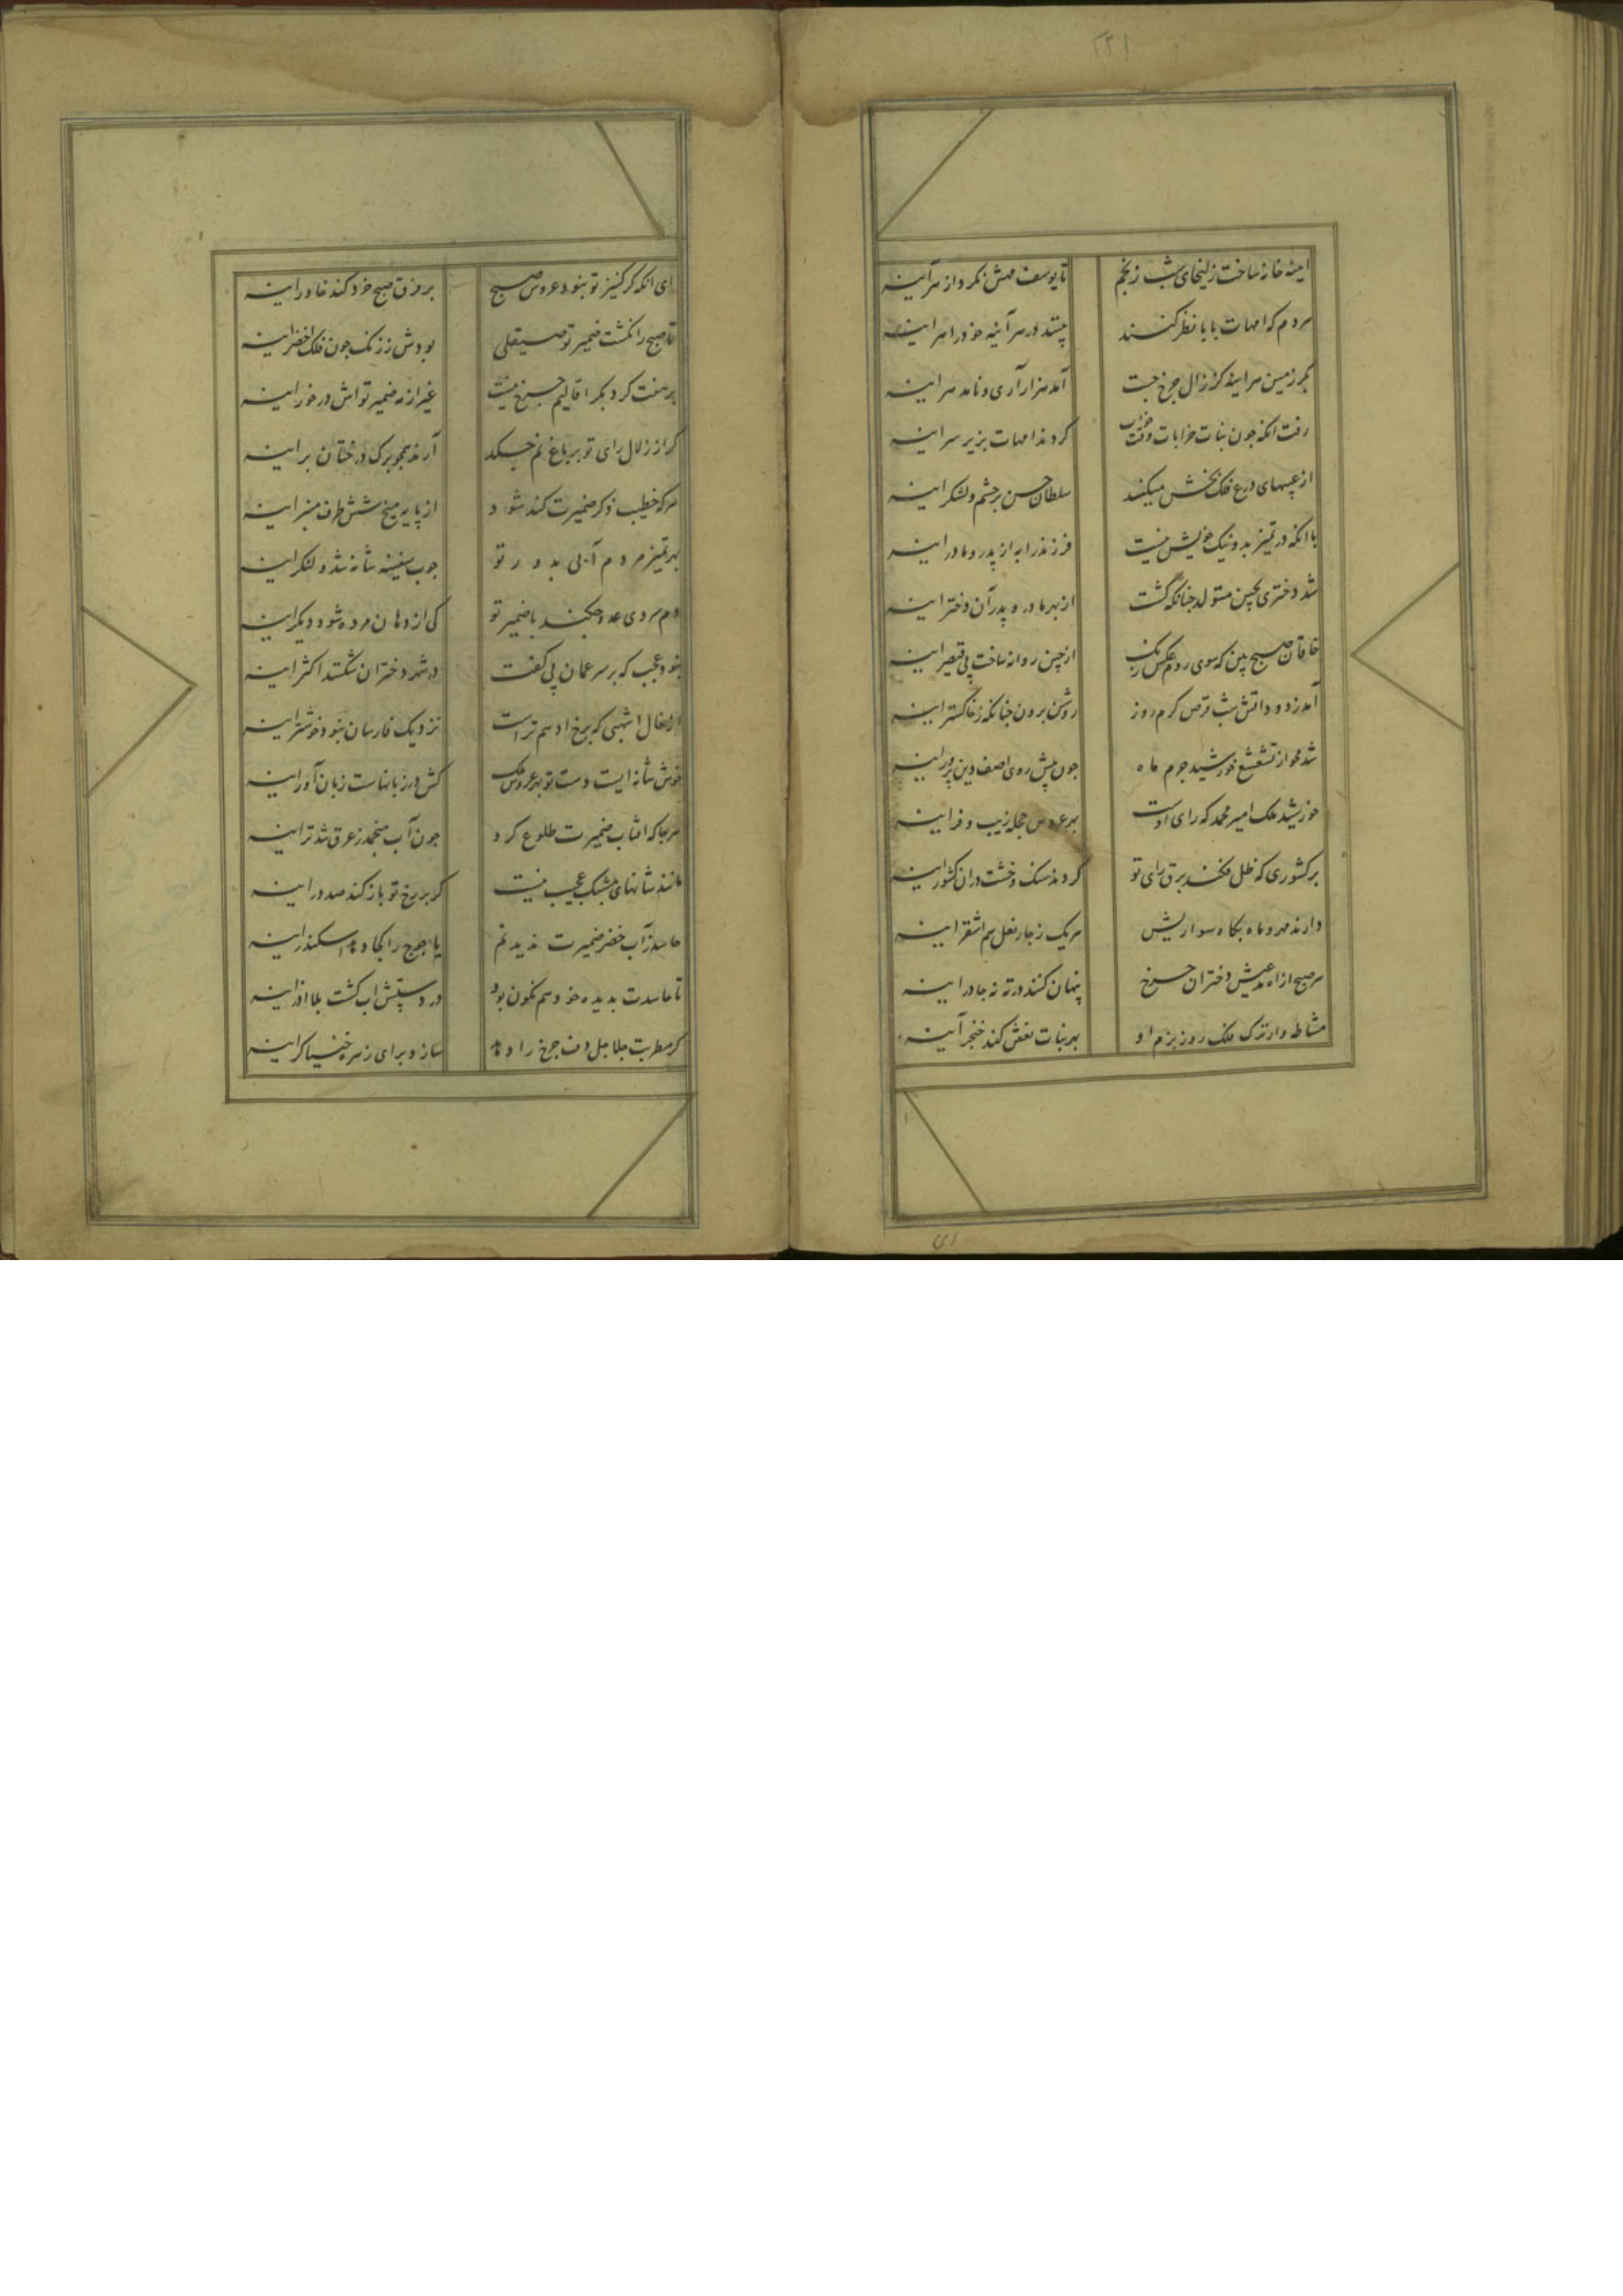 ۲۲۱
اینه خانه ساخت زلیخای شب زنجم
تا یوسف مهش نکرد از سر آینه
مردم که امهات بابا نظر کنند
بینند در سر آینه خود را سر اینه
بکر زمین سر اینه کز زال چرخ جست
آمد هزار آری و نامد سر اینه
رفت انکه چون بنات خرابات وقت
کردند امهات بزیر سر اینه
از چشمهای درع فلک بخش میکند
سلطان حسن بر چشم و لشکر اینه
با انکه در تمیز بد و نیک خویش نیست
فرزند را به از پدر و مادر اینه
شد دختری بچین متولد چنانکه گشت
از بهر مادر و پدر آن دختر اینه
خاقان صبح بین که سوی روم عکس رنک
از چین روانه ساخت پی قیصر اینه
آمد ز دود اتش شب قرص کرم روز
روشن برون چنانکه ز خاکستر اینه
شد محو از تشعشع خورشید جرم ماه
چون پیش روی اصف دین پرور اینه
خورشید ملک امیر محمد که رای اوست
بهر عروس حجله زیب و فر اینه
بر کشوری که ظل فکند برق رای تو
کردند سنک و خشت دران کشور اینه
دارند مهر و ماه بکاه سواریش
سر یک ز چار نعل سم اشقر اینه
سر صبح از اه عیش دختران چرخ
پنهان کنند در ته نه چادر اینه
مشاطه وار ترک فلک روز بزم او
بهر بنات نعش کند خنجر آینه
ای
ای انکه کر کنیز تو نبود عروس صبح
بر فرق صبح خود کند خاور اینه
تا صبح را نکشت ضمیر تو صیقلی
بودش ز زنک چون فلک اخضر اینه
بر هفت کرد بکر اقالیم چرخ نیست
غیر از مه ضمیر تو اش در خور اینه
کر از زلال رای تو بر باغ نم چکد
آرند همچو برک درختان بر اینه
سر که خطیب ذکر ضمیرت کند شود
از پایه میخ شش طرف منبر اینه
بهر تمیز مردم آبی بدور تو
چوب سفینه شانه شد و لنکر اینه
دم سردی عدو چکند با ضمیر تو
کی از دهان مرده شود دیکر اینه
نبود عجب که بر سر عمان پی کفت
در شهد دختران شکستند اکثر اینه
نعال اشهبی که برخ ادهم تراست
نزدیک فارسان نبود خوشتر اینه
خوش شانه ایست دست تو بهر عروس ملک
کش در زبانهاست زبان آور اینه
سر جا که افتاب ضمیرت طلوع کرد
چون آب منجمد ز عرق شد تر اینه
مانند شانهای مشبک عجیب نیست
کر بر رخ تو باز کند صد در اینه
حاسد ز آب خضر ضمیرت ندید نم
یاجوج را کجا دهد اسکندر اینه
تا حاسدت بدیده خود هم نکون بود
در دستش اب کشت بلا اذر اینه
کر مطربت جلاجل دف چرخ را دهد
سازد برای زهره خنیاکر اینه